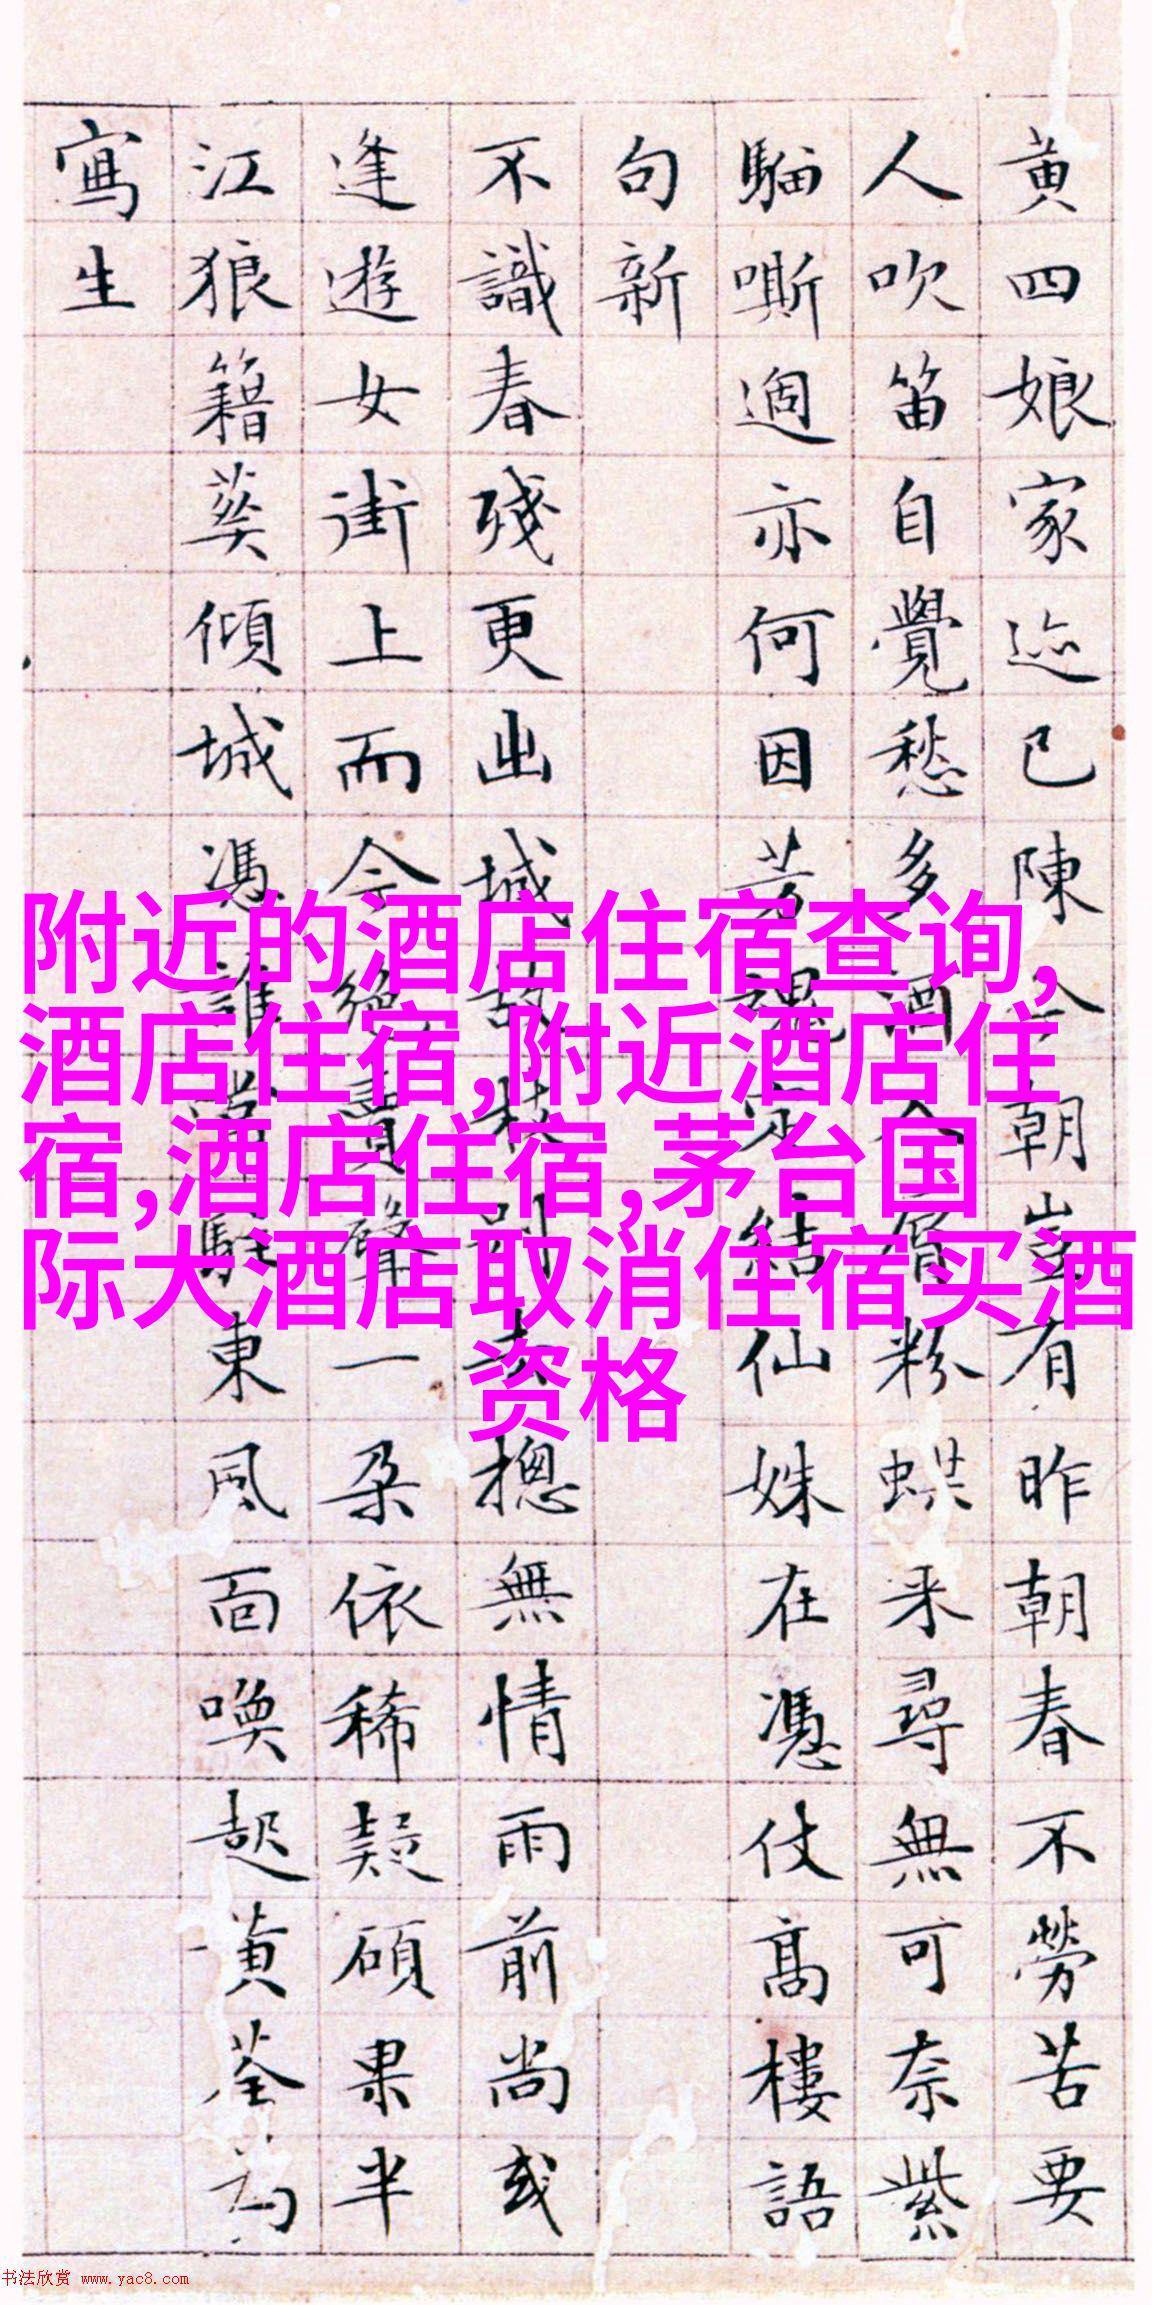 黄四娘家迹已陳今朝豈有昨朝春不勞苦要
人吹笛自覺愁多酒入唇粉蝶来尋無可奈紫
騮嘶過亦何因芳魂定結仙姝在憑仗髙樓語
句新
不識春殘更出城故枝别去摠無情雨前尚或
逢遊女街上而今絶賣聲一朵依稀疑碩果半
江狼籍葵傾城馮誰常駐東風面喚起黄荃為
寫生
附近的酒店住宿查询,
酒店住宿,附近酒店住
宿,酒店住宿,茅台国
际大酒店取消住宿买酒
资格
书法欣赏 www.yac8.com